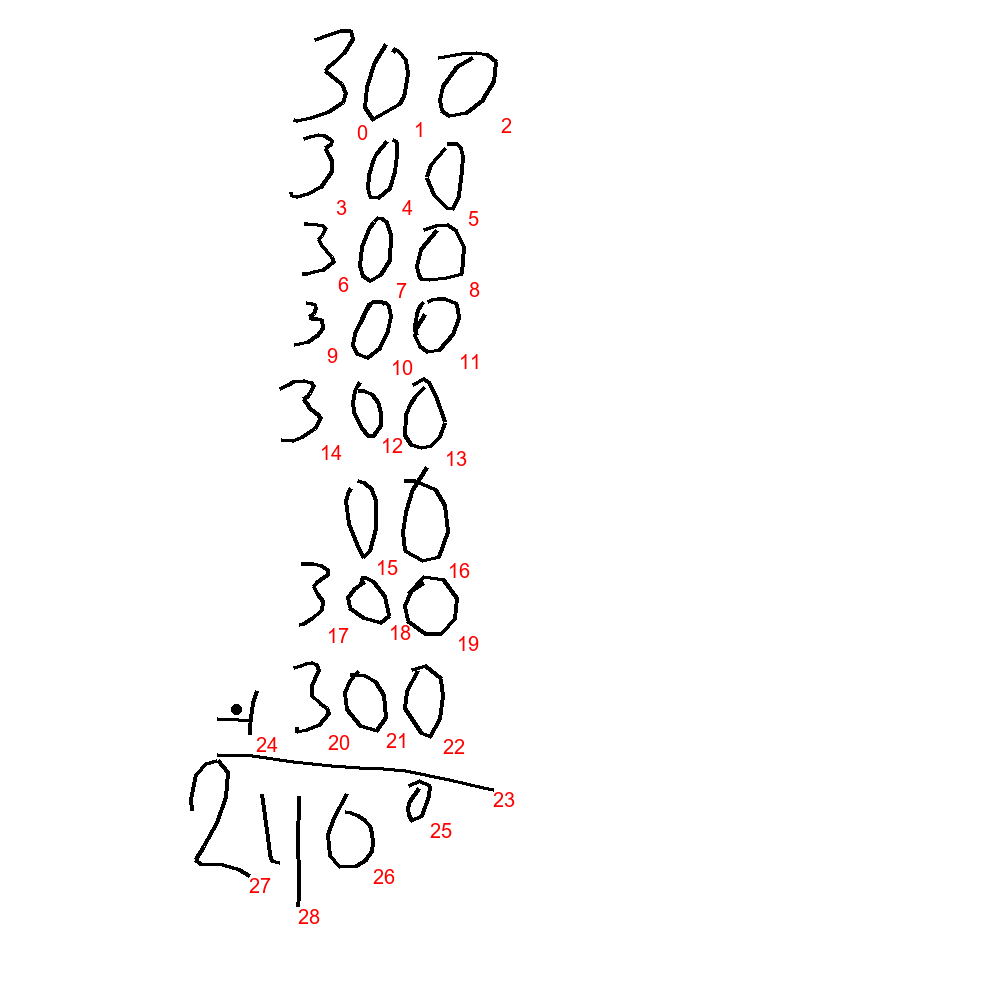 300
0 1 2
300
3 4 5
300
6 7 8
300
9 10 11
300
14 12 13
00
15 16
300
17 18 19
+ 300
24 20 21 22
23
2400
27 28 26 25